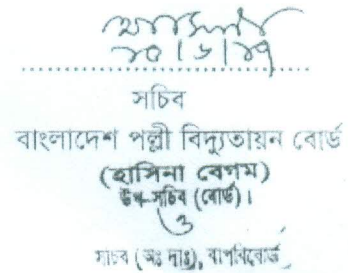 ১০/৬/১৭
সচিব
বাংলাদেশ পল্লী বিদ্যুতায়ন বোর্ড
(হাসিনা বেগম)
উপ-সচিব (বোর্ড)।
ও
সচিব (অঃ দাঃ), বাপবিবোর্ড